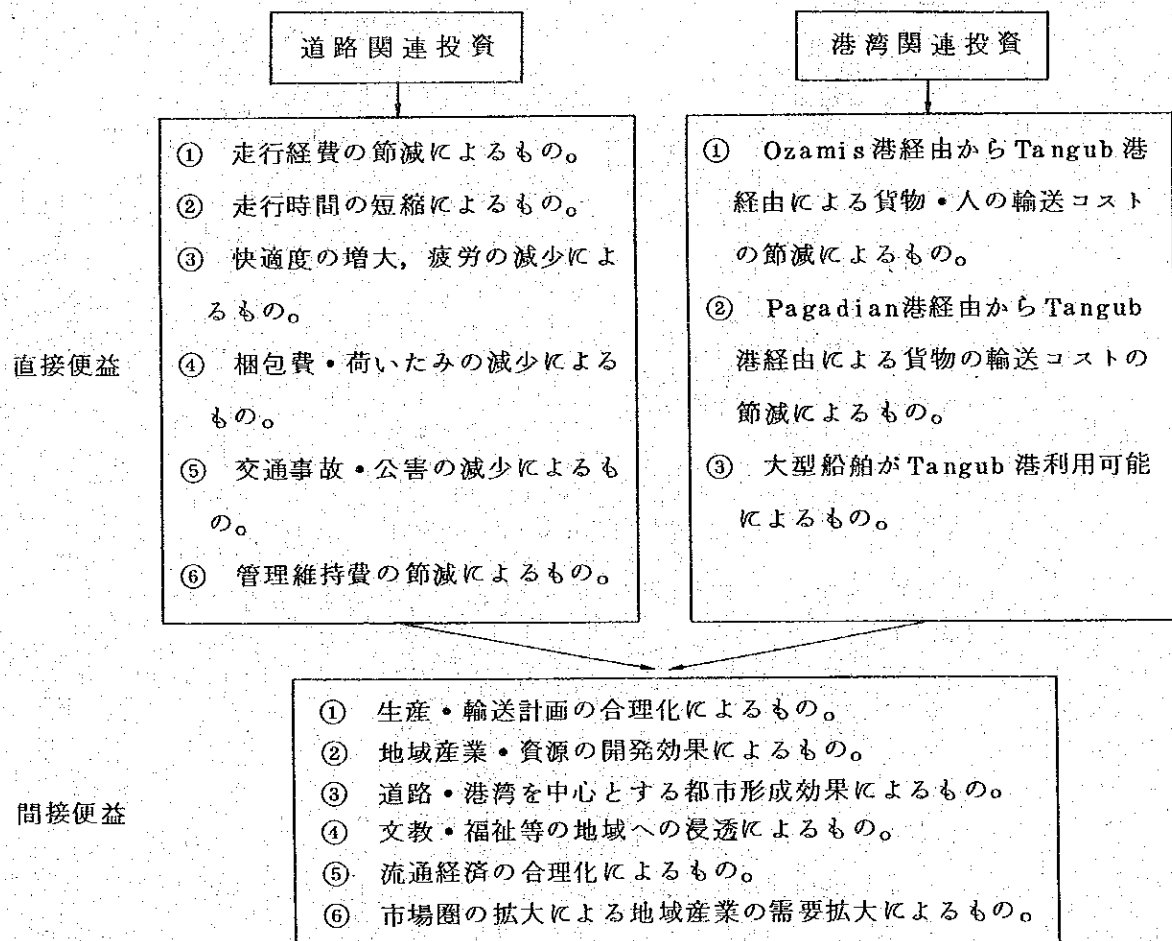 道路関連投資
港湾関連投資
直接便益
① 走行経費の節減によるもの。
② 走行時間の短縮によるもの。
③ 快適度の増大，疲労の減少によ
るもの。
④ 梱包費・荷いたみの減少による
もの。
⑤ 交通事故・公害の減少によるも
の。
⑥ 管理維持費の節減によるもの。
① Ozamis港経由からTangub港
経由による貨物・人の輸送コスト
の節減によるもの。
② Pagadian港経由からTangub
港経由による貨物の輸送コストの
節減によるもの。
③ 大型船舶がTangub港利用可能
によるもの。
間接便益
① 生産・輸送計画の合理化によるもの。
② 地域産業・資源の開発効果によるもの。
③ 道路・港湾を中心とする都市形成効果によるもの。
④ 文教・福祉等の地域への浸透によるもの。
⑤ 流通経済の合理化によるもの。
⑥ 市場圏の拡大による地域産業の需要拡大によるもの。